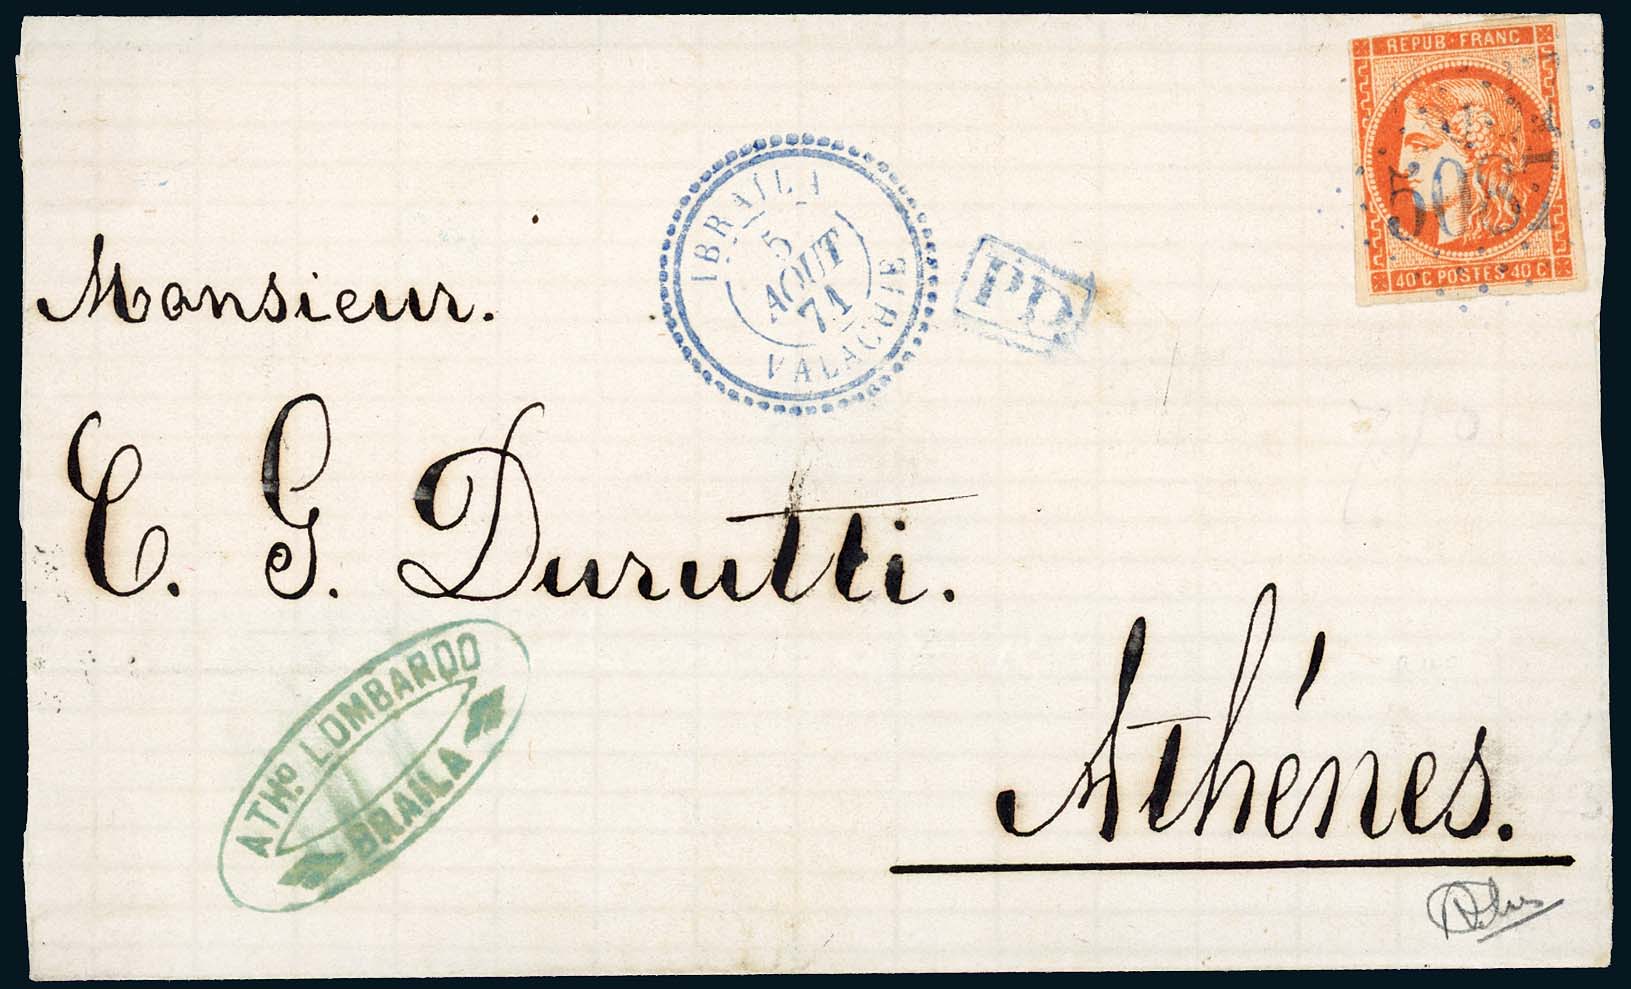 REPUB·FRANC
5087
40 C POSTES 40 C
IBRAÏLA
5
AOUT
71
VALACHIE
PD
Monsieur.
C. G. Durutti.
ATHº LOMBARDO
BRAILA
Athénes.